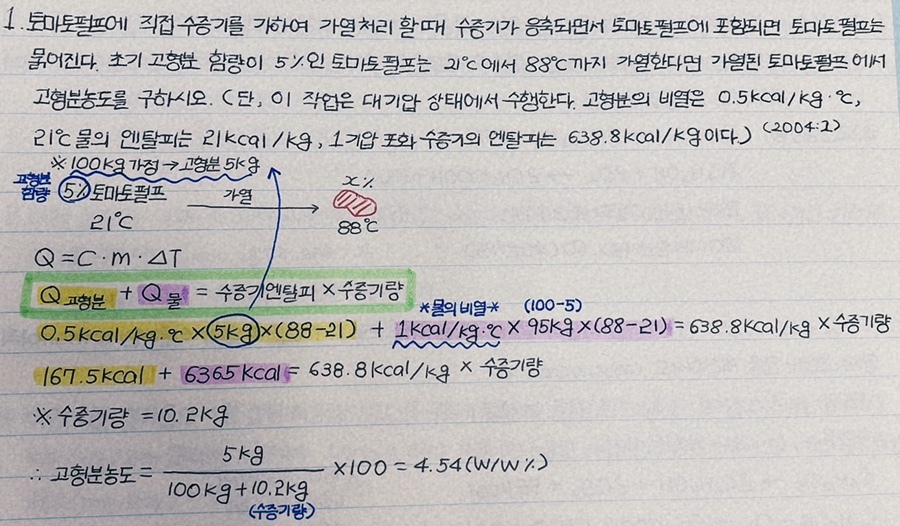 1. 토마토펄프에 직접 수증기를 가하여 가열처리 할 때 수증기가 응축되면서 토마토펄프에 포함되면 토마토펄프는
묽어진다. 초기 고형분 함량이 5%인 토마토펄프는 21℃에서 88℃까지 가열한다면 가열된 토마토펄프에서
고형분농도를 구하시오. (단, 이 작업은 대기압 상태에서 수행한다. 고형분의 비열은 0.5kcal/kg·℃,
21℃ 물의 엔탈피는 21kcal/kg, 1기압 포화 수증기의 엔탈피는 638.8kcal/kg이다.) (2004:2)
※ 100kg 가정 → 고형분 5kg
고형분 함량 5% 토마토펄프 가열 x%
21℃ 88℃
Q = C·m·ΔT
Q고형분 + Q물 = 수증기엔탈피 × 수증기량
*물의비열* (100-5)
0.5kcal/kg·℃ × 5kg × (88-21) + 1kcal/kg·℃ × 95kg × (88-21) = 638.8kcal/kg × 수증기량
167.5kcal + 6365kcal = 638.8kcal/kg × 수증기량
※ 수증기량 = 10.2kg
∴ 고형분농도 = 5kg / 100kg+10.2kg ×100 = 4.54(W/W%)
(수증기량)